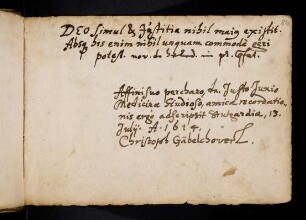 DEO simul & Justitia nihil maius existit.
Absq. his enim nihil unquam commodè geri
potest. nov. in
Affini suo percharo, Justo Junio
Medicinæ studioso, amicæ recordatio-
nis ergò adscripsit Stutgardiæ, 13.
Julij. A. 1614.
Christoph Gäbelchover